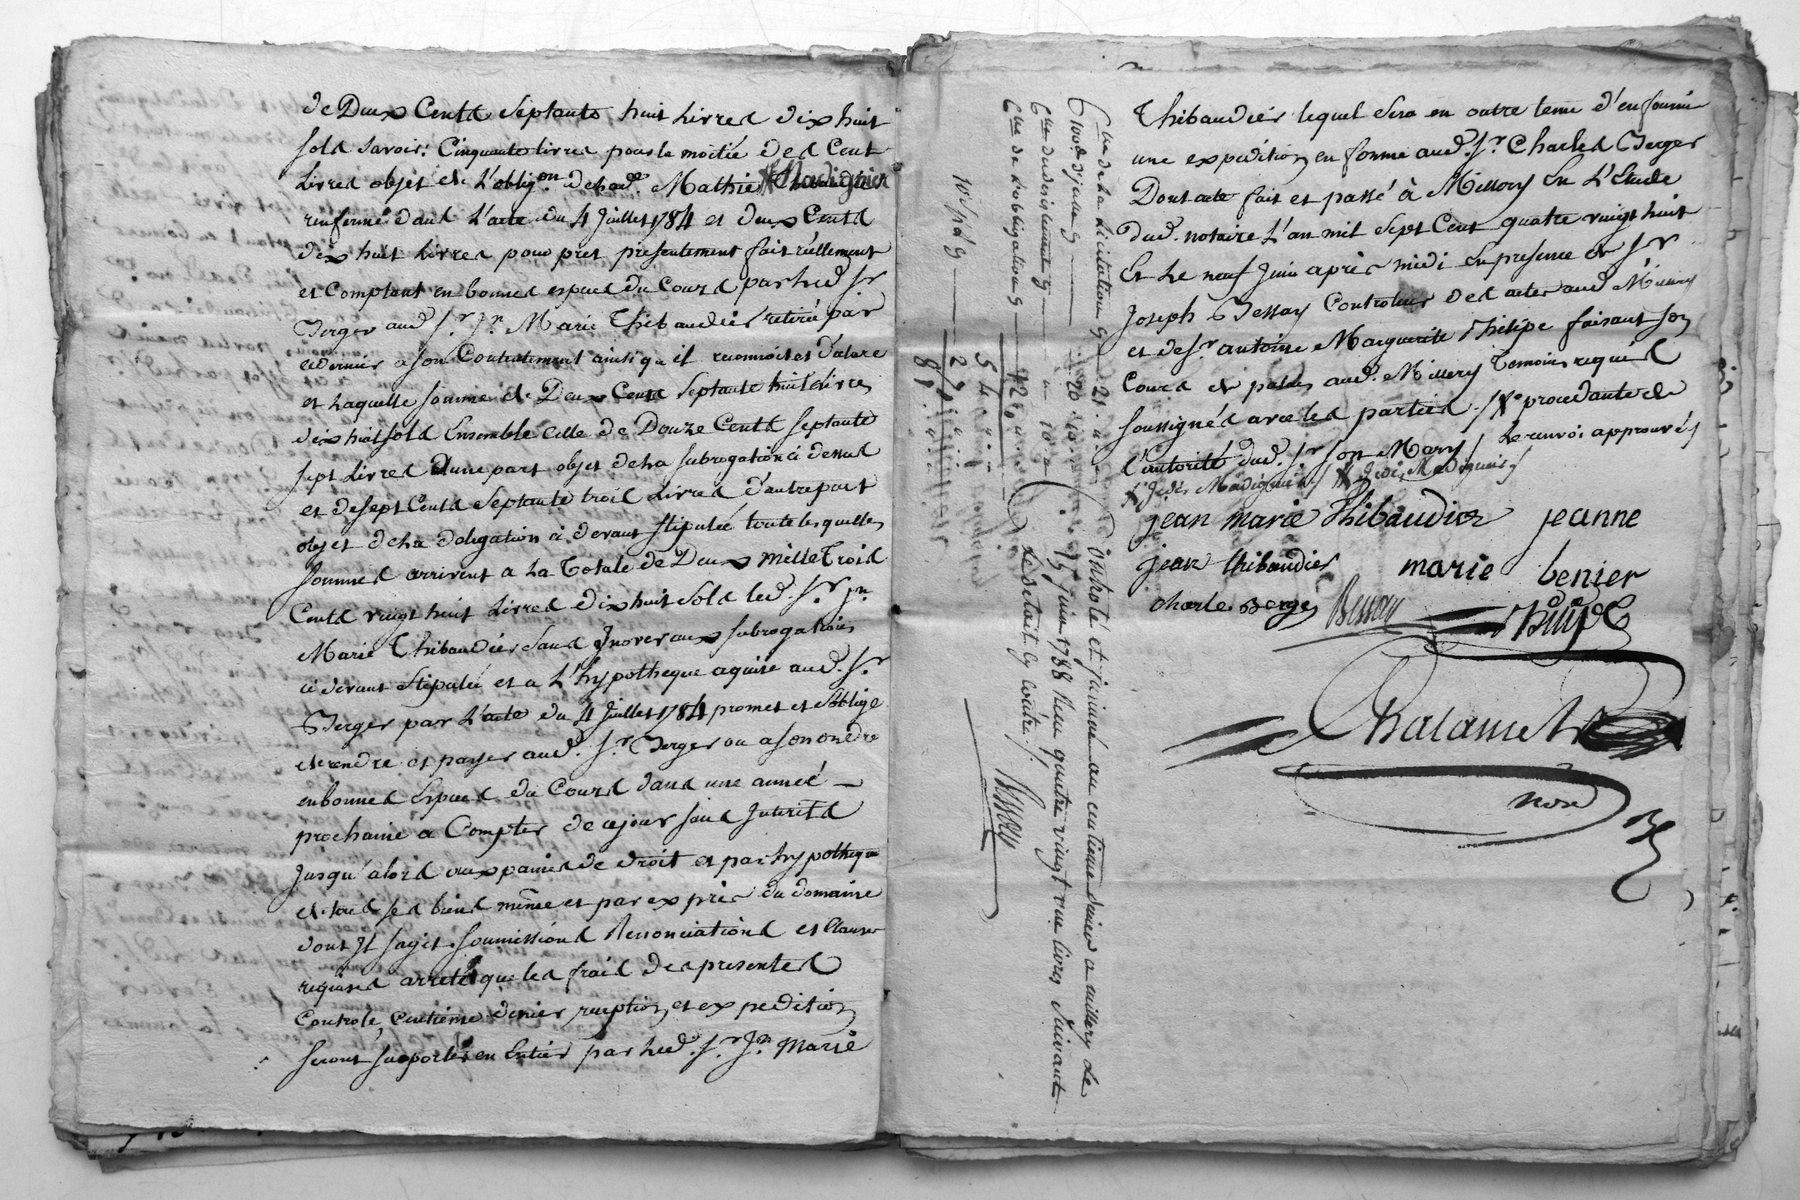 de Deux Cents Septante huit Livres dix huit
sols savoir: Cinquante livres pour le moitié des Cent
Livres objet de L'oblig.on de lad.e Mathie Madignier
renfermé dans L'acte du 4 Juillet 1784 et deux Cents
dix huit Livres pour pret presentement fait réellement
et Comptant en bonnes especes du Cours par led Sr
Berger aud. Sr. Jn. Marie Thibaudier retirée par
ce dernier a son Contentement ainsi qu'il reconnoit et declare
et Laquelle somme de Deux Cents Septante huit Livres
dix huit sols Ensemble Celle de Douze Cents septante
sept Livres d'une part objet de la subrogation ci dessus
et de sept Cents Septante trois Livres d'autre part
objet de la deligation ci devant stipulée toutes lesquelles
sommes arrivent a La Totale de Deux mille Trois
Cents vingt huit Livres dix huit Sols led. Sr. jn.
Marie Thibaudier sans Inover aux subrogations
ci devant Stipulée et a L'hypotheque aquise aud. Sr
Berger par L'acte du 4 Juillet 1784 promet et s'oblige
de rendre et payer aud. Sr. Berger ou a son ordre
en bonnes Especes du Cours dans une année
prochaine a Compter de ce jour sans Interets
Jusqu'alors aux peines de droit et par hypotheque
de tous ses biens même et par exprès du domaine
dont Il s'agit. soumissions Renonciations et Clauses
requises arreté que les frais des presentes
Controle, Centieme denier reception et expedition
seront supportés en Entier par led. Sr. Jn. Marie
Thibaudier lequel sera en outre tenu d'en fournir
une expedition en forme aud. Sr. Charles Berger
Dont acte fait et passé à Millery En L'Etude
dud. notaire L'an mil Sept Cent quatre vingt huit
Et Le neuf Juin après midi En presence de Sr
Joseph Bessay Controleur des actes aud. Millery
et de Sr antoine Marguerite Philipe faisant son
Cours de palais aud. Millery Temoins requis
soussignés avec les parties. /X.e procedante de
l'autorité dud. Sr son Mary / Le renvoi approuvé/
jean marie thibaudier jeanne
jean thibaudier marie benier
charle Berge Bessay Philipe
Chalamel
nore
Cne de la Licitation 21
Cne de l'obligation
54
27
81
Controlé et insinué au centieme denier a millery le
15 Juin 1788 Recu quatre vingt une livres suivant
le detail cy contre./. Bessay